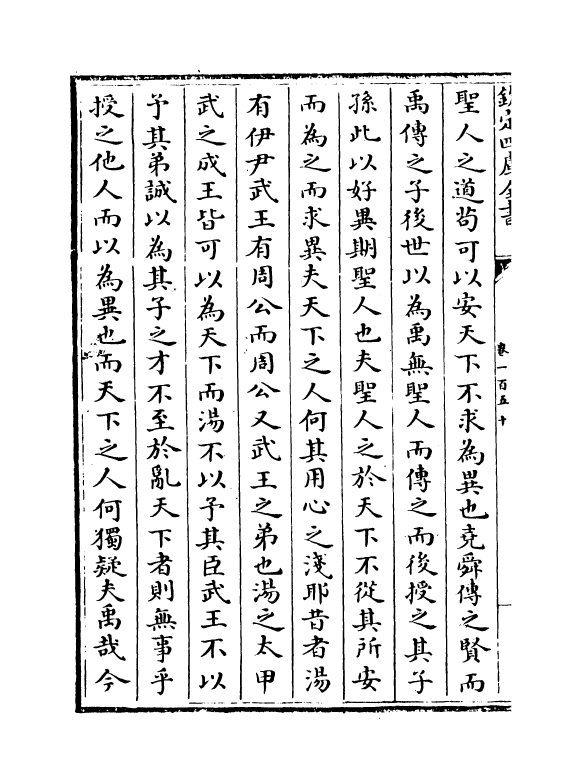 欽定四庫全書
卷一百五十
聖人之道茍可以安天下不求為異也堯舜傳之賢而
禹傳之子後世以為禹無聖人而傳之而後授之其子
孫此以好異期聖人也夫聖人之於天下不從其所安
而為之而求異夫天下之人何其用心之淺耶昔者湯
有伊尹武王有周公而周公又武王之弟也湯之太甲
武之成王皆可以為天下而湯不以予其臣武王不以
予其弟誠以為其子之才不至於亂天下者則無事乎
授之他人而以為異也而天下之人何獨疑夫禹哉今